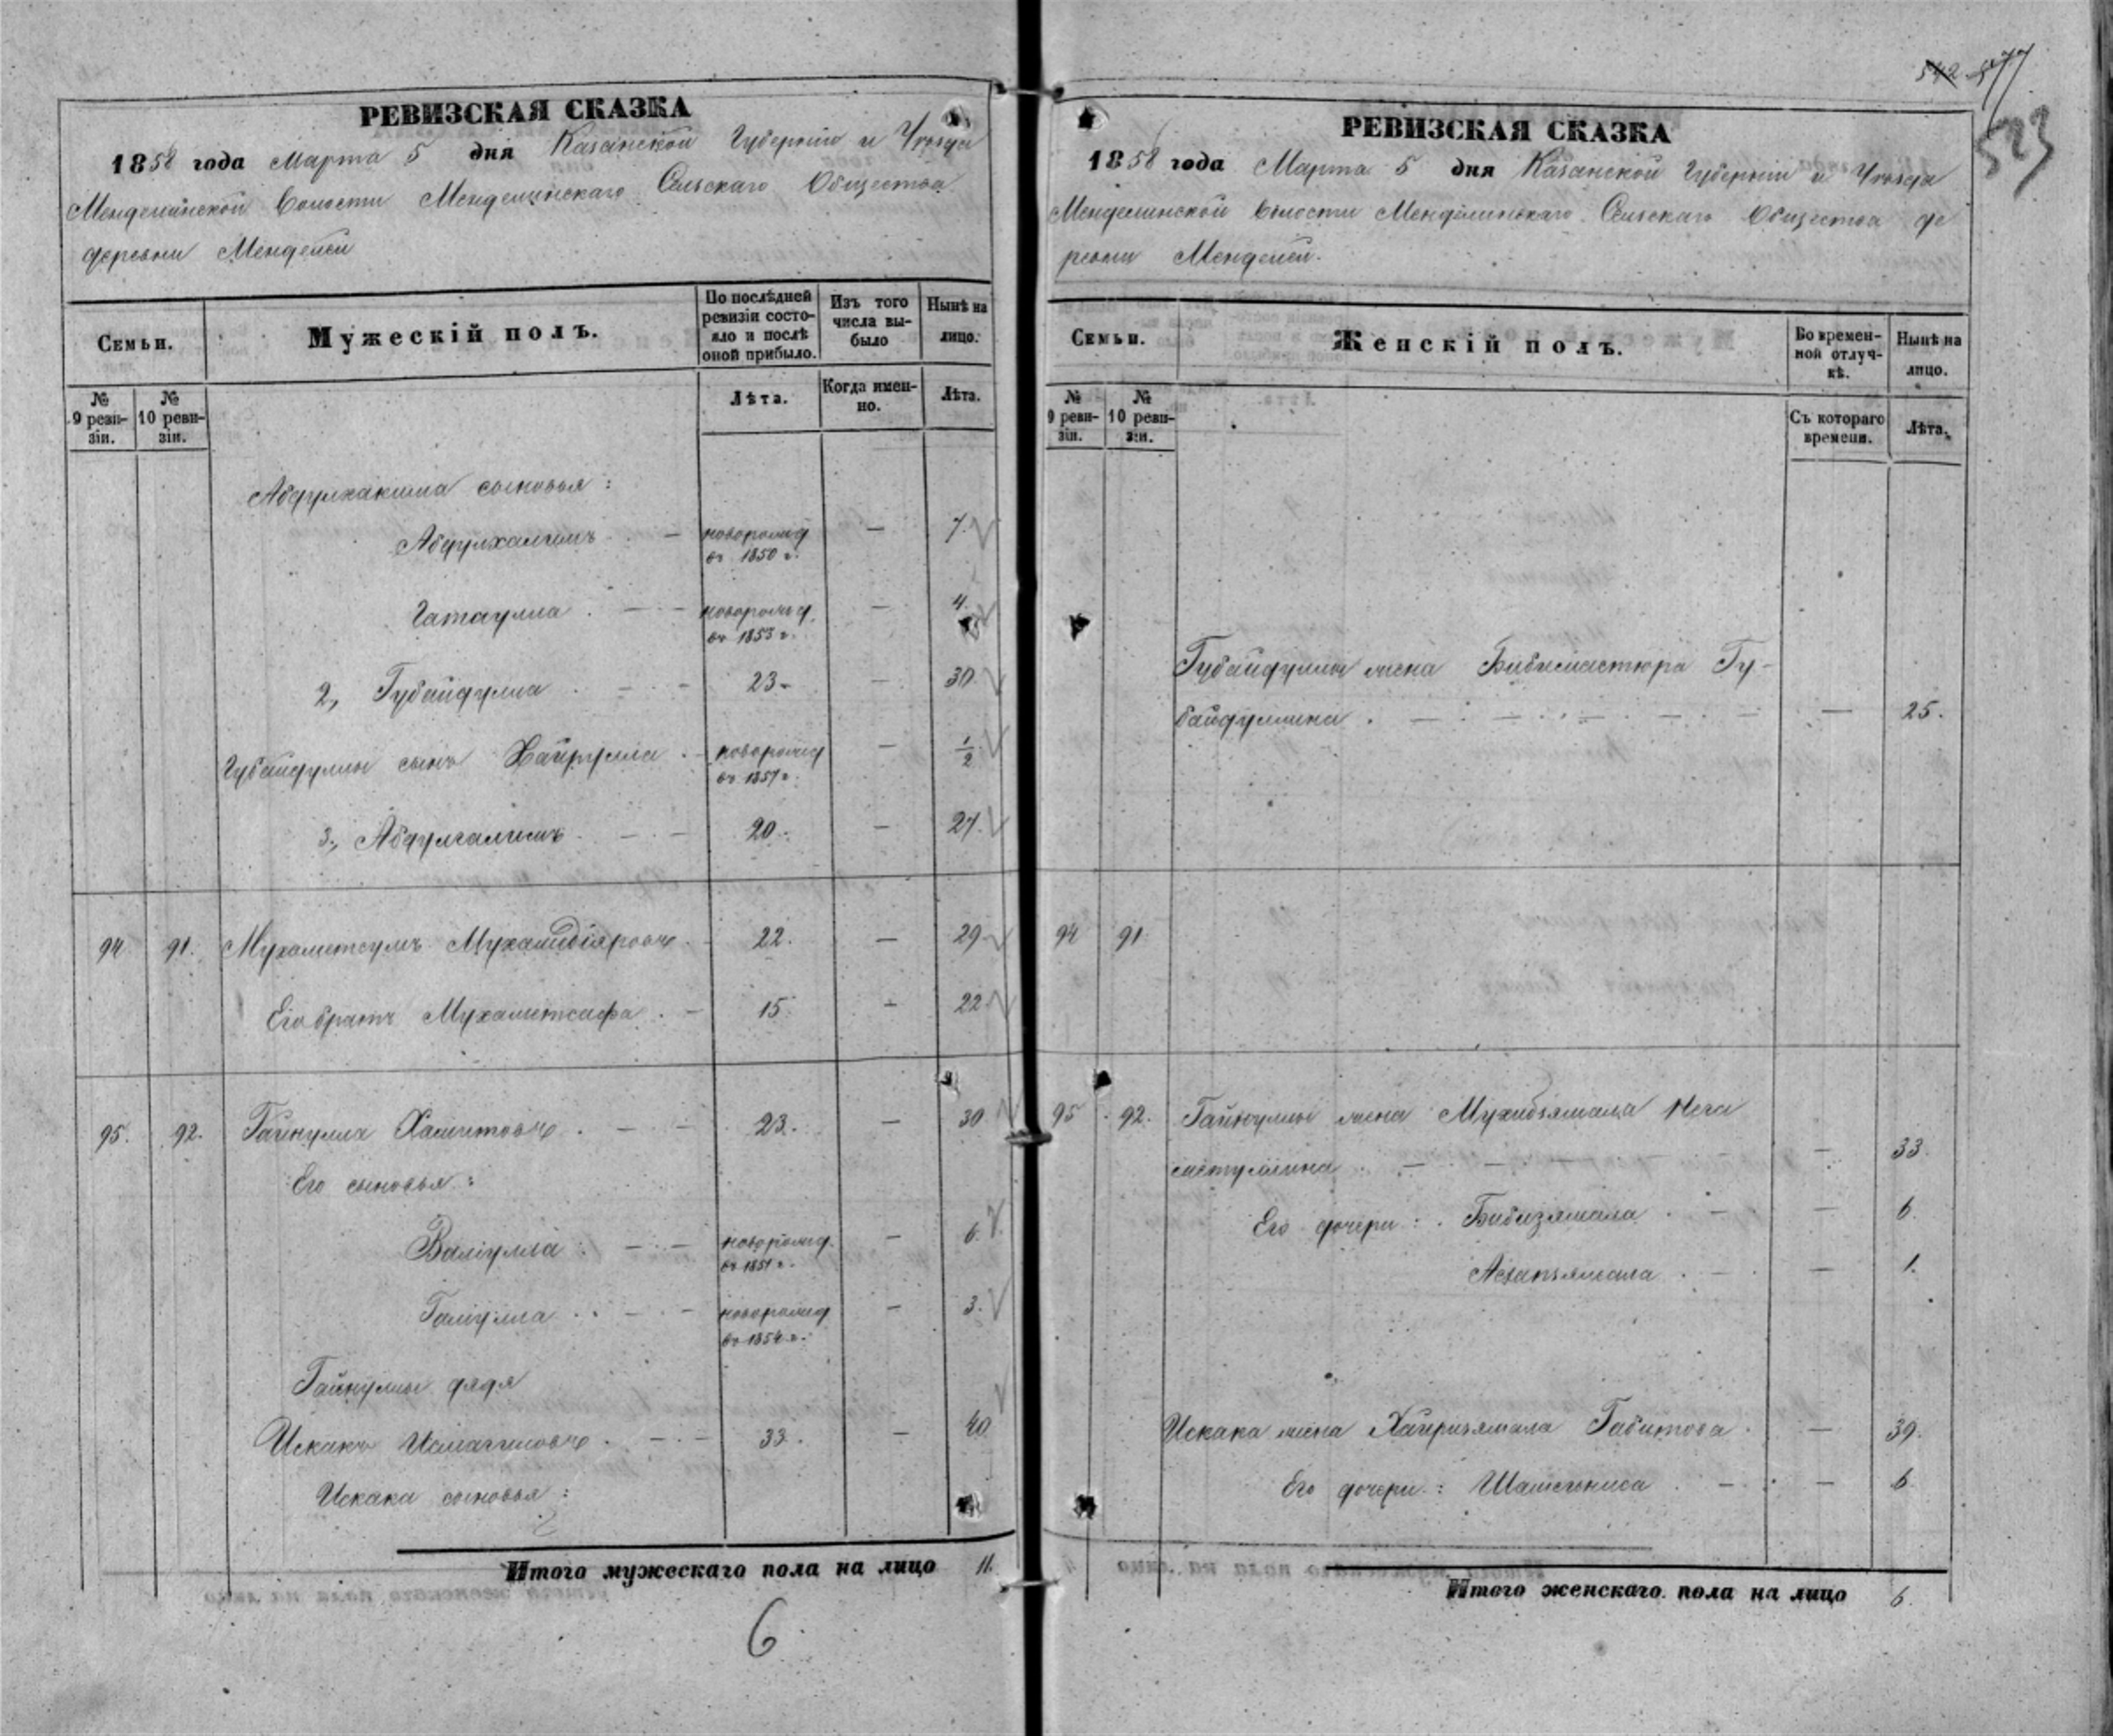 542 577
523
РЕВИЗСКАЯ СКАЗКА
1858 года Марта 5 дня Казанской Губерніи и Уѣзда
Менделинской Волости Менделинскаго Сельскаго Общества
деревни Менделей
Семьи.
Мужескій полъ.
По послѣдней ревизіи состояло и послѣ оной прибыло.
Изъ того числа выбыло
Нынѣ на лицо.
№ 9 ревизіи.
№ 10 ревизіи.
Лѣта.
Когда именно.
Лѣта.
Абдулхакима сыновья:
Абдулхалимъ - новорожд въ 1850 г. — 7.
Гатаулла - новорожд. въ 1853 г. — 4.
2, Губайдулла - 23 — 30
Губайдуллы сынъ Хайрулла - новорожд въ 1857 г. — 1/2
3, Абдулгалимъ - 20. — 27.
94 91. Мухаметгулъ Мухамидіяровъ 22. — 29
Его братъ Мухаметсафа - 15 — 22
95. 92. Гайнулла Хамитовъ - 23. — 30
Его сыновья:
Валіулла - новорожд. въ 1851 г. — 6.
Галіулла - новорожд въ 1854 г. — 3.
Гайнуллы дядя
Искакъ Исмагиловъ - 33. — 40
Искака сыновья:
Итого мужескаго пола на лицо 11.
6
РЕВИЗСКАЯ СКАЗКА
1858 года Марта 5 дня Казанской Губерніи и Уѣзда
Менделинской Волости Менделинскаго Сельскаго Общества де
ревни Менделей.
Семьи.
Женскій полъ.
Во временной отлучкѣ.
Нынѣ на лицо.
№ 9 ревизіи.
№ 10 ревизіи.
Съ котораго времени.
Лѣта.
Губайдуллы жена Бибимастюра Гу-
байдуллина — 25.
94 91
95 92. Гайнуллы жена Мухибзямала
— 33
Его дочери: Бибизямала — 6
— 1.
Искака жена Хайризямала Габитова — 39.
Его дочери: Шамсениса — 6
Итого женскаго пола на лицо 6.